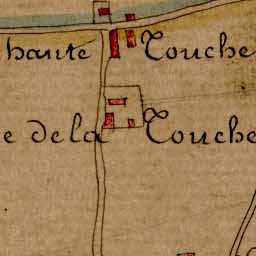 hanté Touche
e dela Touche